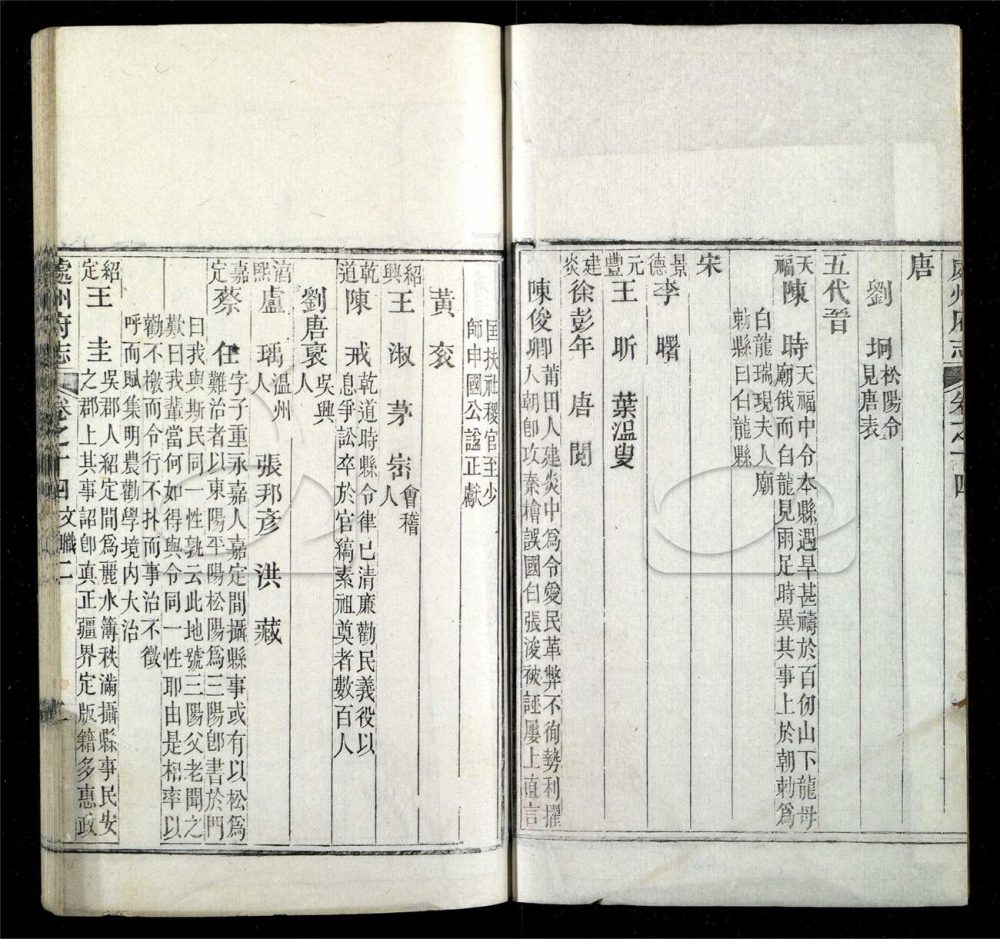 處州府志 卷之十四
唐
劉坰 松陽令
見唐表
五代晉
天福 陳時 天福中令本縣遇旱甚禱於百仞山下龍母
廟俄而白龍見雨足時異其事上於朝勅爲
白龍瑞現夫人廟
勅縣曰白龍縣
宋
景德 李曙
元豐 王昕 葉溫叟
建炎 徐彭年 唐閱
陳俊卿 莆田人建炎中爲令愛民革弊不徇勢利擢
入朝卽攻秦檜誤國白張浚被誣屢上直言
匡扶社稷官至少
師申國公謚正獻
黃袞
紹興 王淑 茅密 會稽
人
乾道 陳戒 乾道時縣令律己清廉勸民義役以
息爭訟卒於官縞素祖奠者數百人
劉唐裛 吳興
人
淳熙 盧瑀 溫州
人 張邦彥 洪藏
嘉定 蔡仕 字子重永嘉人嘉定間攝縣事或有以松爲
難治者以東陽平陽松陽爲三陽卽書於門
曰我與斯民同一性孰云此地號三陽父老聞之
歎曰我輩當何如得與令同一性耶由是相率以
勸不檄而令行不扑而事治不徵
呼而賦集明農勸學境內大治
紹定 王圭 吳郡人紹定間爲麗水簿秩滿攝縣事民安
之郡上其事詔卽眞正疆界定版籍多惠政
處州府志 卷之十四 文職二